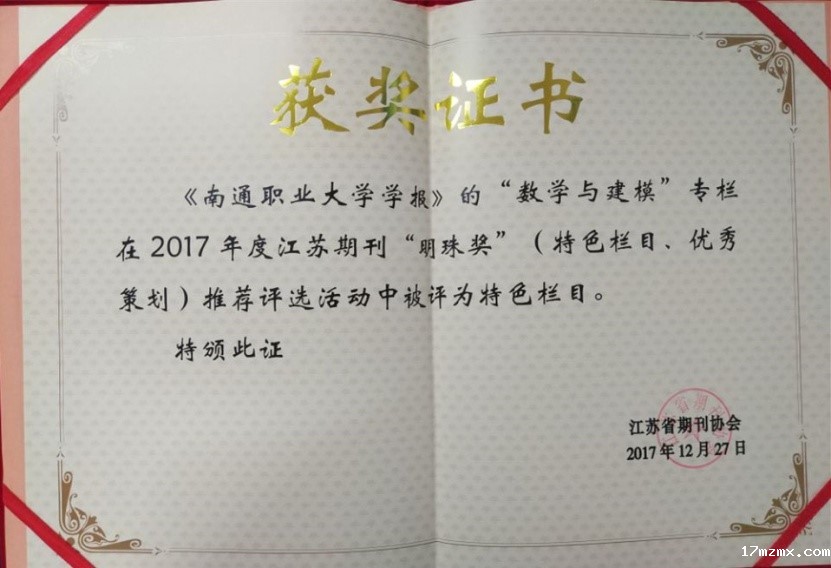 获奖证书
《南通职业大学学报》的“数学与建模”专栏
在2017年度江苏期刊“明珠奖”（特色栏目、优秀
策划）推荐评选活动中被评为特色栏目。
特颁此证
江苏省期刊协会
2017年12月27日
www.17mzmx.com